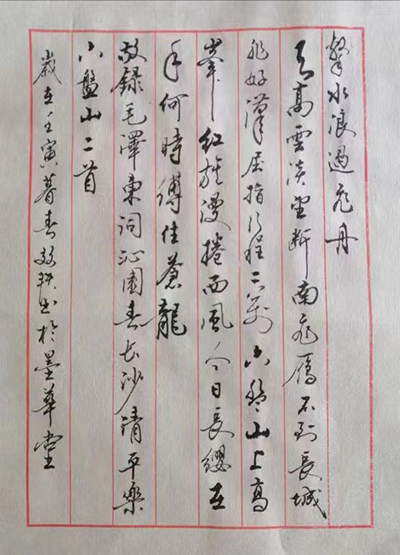 擊水浪遏飛舟
天高雲淡望斷南飛雁不到長城
非好漢屈指行程二萬六盤山上高
峯紅旗漫捲西風今日長纓在
手何時縛住蒼龍
錄毛澤東詞沁園春長沙清平樂
六盤山二首
歲在壬寅暮春书於墨華堂